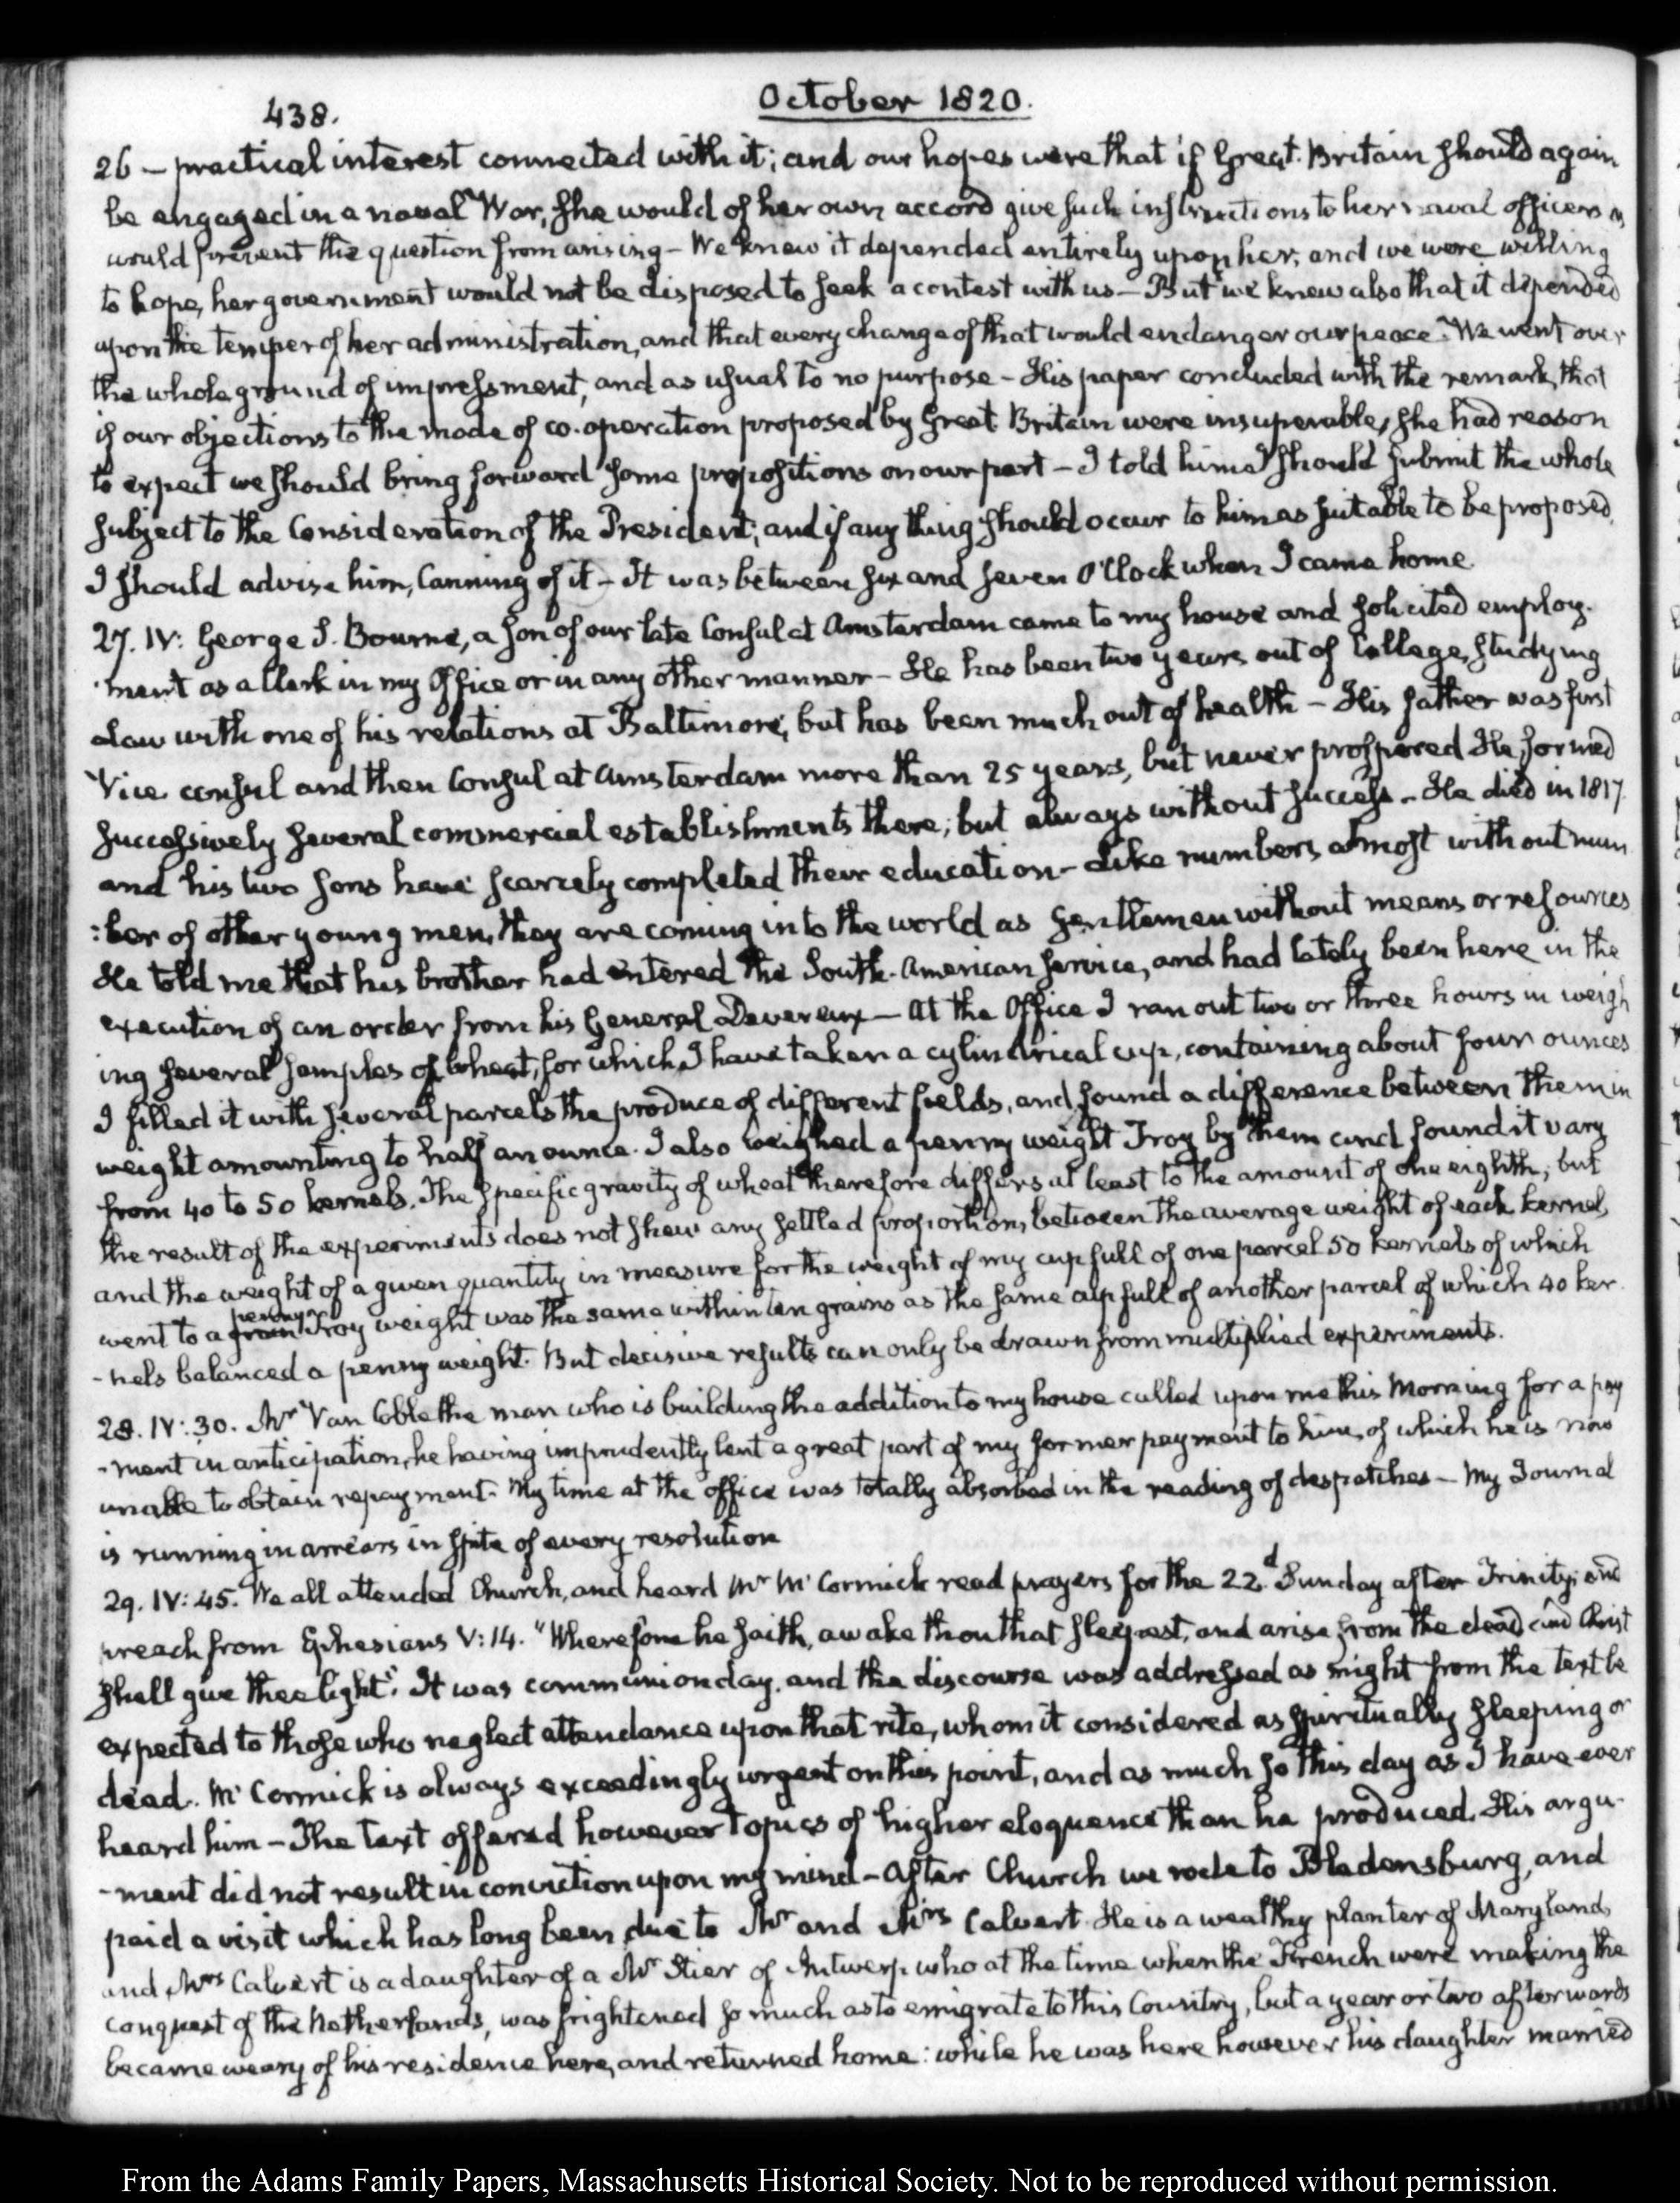 438.
October 1820.
26 – practical interest connected with it; and our hopes were that if Great-Britain should again
be engaged in a naval War, she would of her own accord give such instructions to her naval officers as
would prevent the question from arising – We knew it depended entirely upon her, and we were willing
to hope, her government would not be disposed to seek a contest with us – But we knew also that it depended
upon the temper of her administration, and that every change of that would endanger our peace – We went over
the whole ground of impressment, and as usual to no purpose – His paper concluded with the remark, that
if our objections to the mode of co-operation proposed by Great Britain were insuperable, she had reason
to expect we should bring forward some propositions on our part – I told him I should submit the whole
subject to the Consideration of the President; and if any thing should occur to him as suitable to be proposed,
I should advise him, Canning of it – It was between six and seven O'Clock when I came home.
27. IV: George S. Bourne, a son of our late Consul at Amsterdam came to my house and solicited employ-
-ment as a Clerk in my Office or in any other manner – He has been two years out of College, studying
Law with one of his relations at Baltimore, but has been much out of health – His father was first
Vice consul and then Consul at Amsterdam more than 25 years, but never prospered He formed
successively several commercial establishments there; but always without success – He died in 1817.
and his two sons have scarcely completed their education – Like numbers almost without num
:ber of other young men, they are coming into the world as Gentlemen without means or resources
He told me that his brother had entered the South-American service, and had lately been here in the
execution of an order from his General Devereux – At the Office I ran out two or three hours in weigh
ing several samples of wheat, for which I have taken a cylindrical cup, containing about four ounces
I filled it with several parcels the produce of different fields, and found a difference between them in
weight amounting to half an ounce. I also weighed a penny weight Troy by them and found it vary
from 40 to 50 kernels. The specific gravity of wheat therefore differs at least to the amount of one eighth; but
the result of the experiments does not shew any settled proportion, between the average weight of each kernel,
and the weight of a given quantity in measure for the weight of my cup full of one parcel 50 kernels of which
penny
went to a grain Troy weight was the same within ten grains as the same cup full of another parcel of which 40 ker
-nels balanced a penny weight. But decisive results can only be drawn from multiplied experiments.
28. IV: 30. Mr Van Coble the man who is building the addition to my house called upon me this Morning for a pay
-ment in anticipation, he having imprudently lent a great part of my former payment to him, of which he is now
unable to obtain repayment. My time at the office was totally absorbed in the reading of despatches – My Journal
is running in arrears in spite of every resolution
29. IV: 45. We all attended Church, and heard Mr McCormick read prayers for the 22.d Sunday after Trinity; and
preach from Ephesians V: 14. "Wherefore he saith, awake thou that sleepest, and arise from the dead and Christ
shall give thee light". It was communion day, and the discourse was addressed as might from the text be
expected to those who neglect attendance upon that rite, whom it considered as spiritually sleeping or
dead. McCormick is always exceedingly urgent on this point, and as much so this day as I have ever
heard him – The text offered however topics of higher eloquence than he produced. His argu-
-ment did not result in conviction upon my mind – After Church we rode to Bladensburg, and
paid a visit which has long been due to Mr and Mrs Calvert. He is a wealthy planter of Maryland,
and Mrs Calvert is a daughter of a Mr Stier of Antwerp who at the time when the French were making the
conquest of the Netherlands, was frightened so much as to emigrate to this Country, but a year or two afterwards
became weary of his residence here, and returned home: while he was here however his daughter married
From the Adams Family Papers, Massachusetts Historical Society. Not to be reproduced without permission.